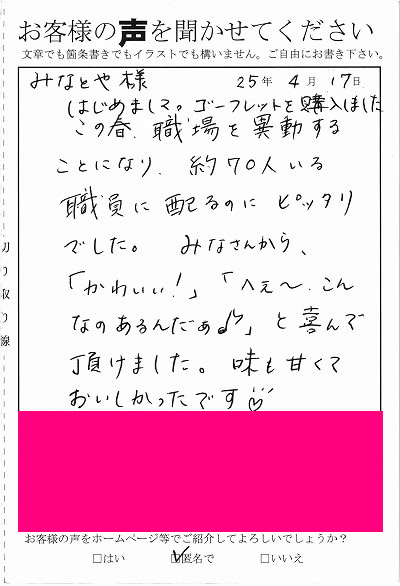 お客様の声を聞かせてください
文章でも箇条書きでもイラストでも構いません。ご自由にお書き下さい。
みなとや様 25年4月17日
はじめまして。ゴーフレットを購入しました
この春、職場を異動する
ことになり、約70人いる
職員に配るのにピッタリ
でした。みなさんから、
「かわいい!」「へぇ〜、こん
なのあるんだぁ♪」と喜んで
頂けました。味も甘くて
おいしかったです♡
切り取り線
お客様の声をホームページ等でご紹介してよろしいでしょうか?
□はい ☑匿名で □いいえ